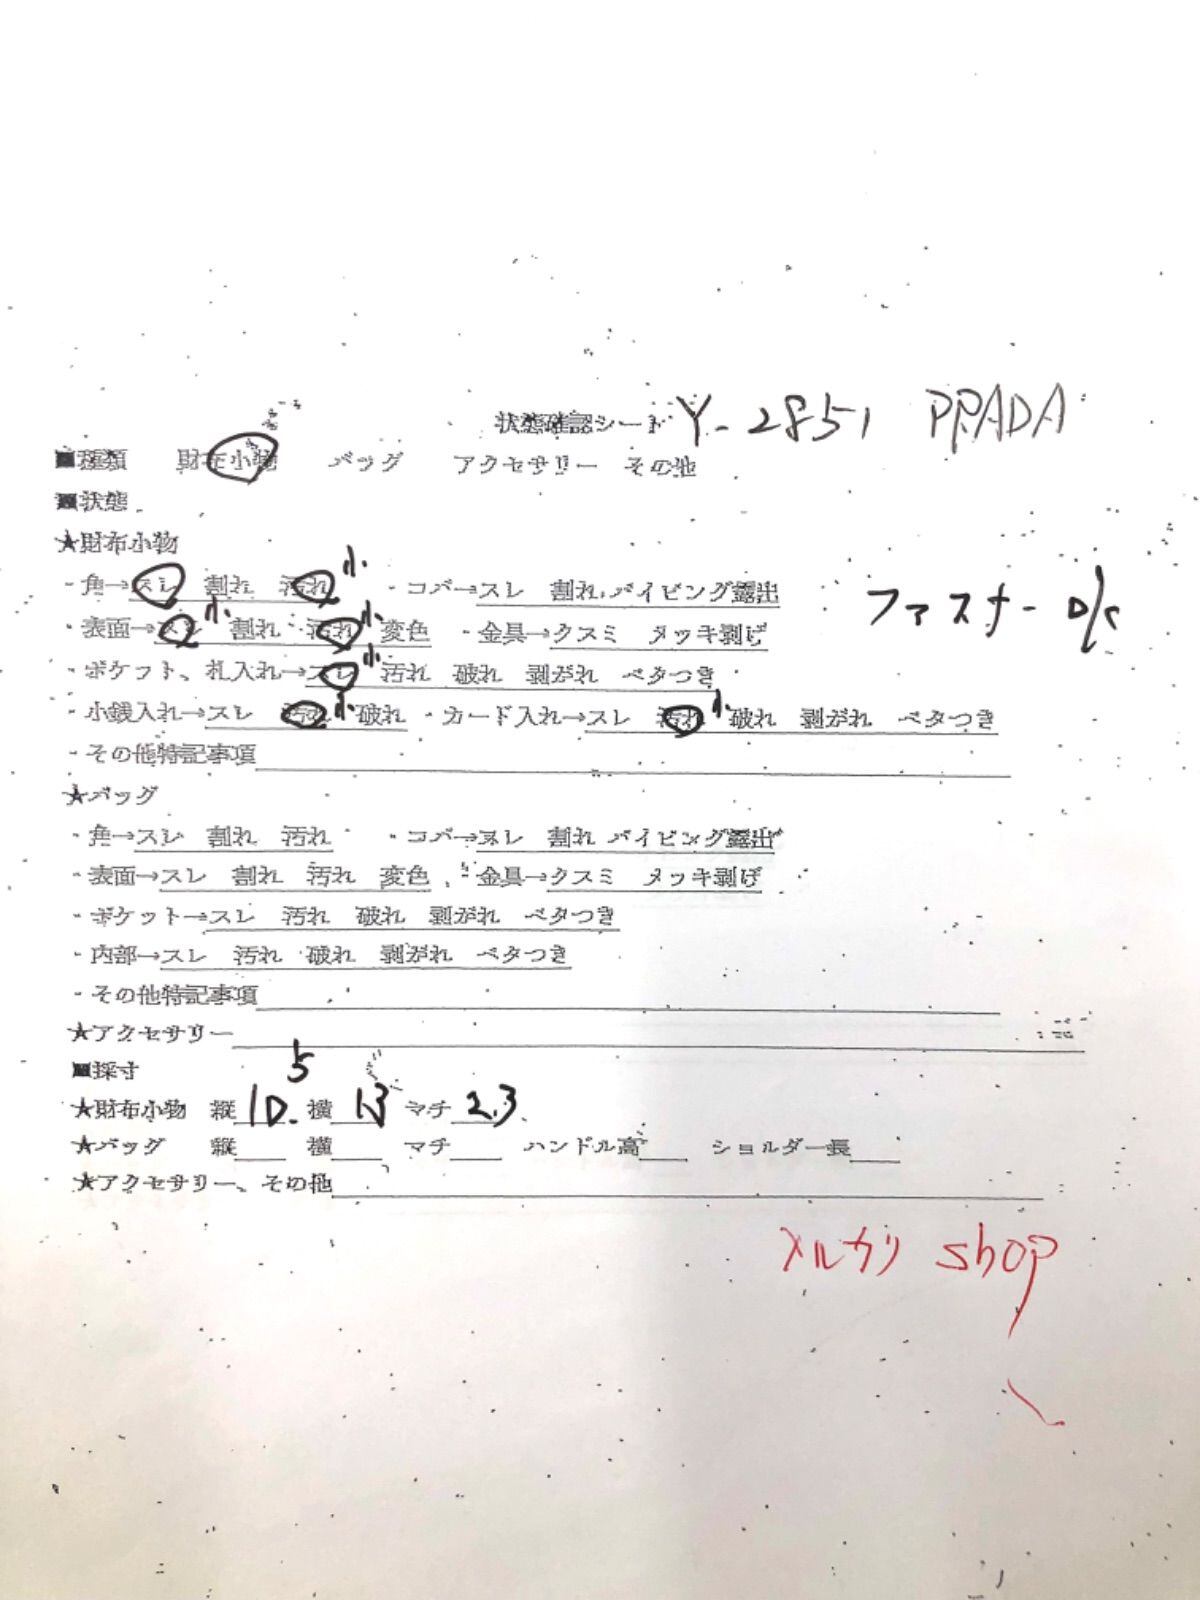 状態確認シート Y-2851 PRADA
■種類 財布小物 バッグ アクセサリー その他
■状態
★財布小物
・角→スレ 割れ 汚れ 小 ・コバ→スレ 割れ パイピング露出
ファスナー
・表面→スレ 小 割れ 汚れ 小 変色 ・金具→クスミ メッキ剥げ
・ポケット、札入れ→スレ 小 汚れ 破れ 剥がれ ベタつき
・小銭入れ→スレ 汚れ 小 破れ ・カード入れ→スレ 汚れ 小 破れ 剥がれ ベタつき
・その他特記事項
★バッグ
・角→スレ 割れ 汚れ ・コバ→スレ 割れ パイピング露出
・表面→スレ 割れ 汚れ 変色 ・金具→クスミ メッキ剥げ
・ポケット→スレ 汚れ 破れ 剥がれ ベタつき
・内部→スレ 汚れ 破れ 剥がれ ベタつき
・その他特記事項
★アクセサリー
■採寸
★財布小物 縦 10.5 横 13 マチ 2.3
★バッグ 縦 横 マチ ハンドル高 ショルダー長
★アクセサリー、その他
メルカリ shop